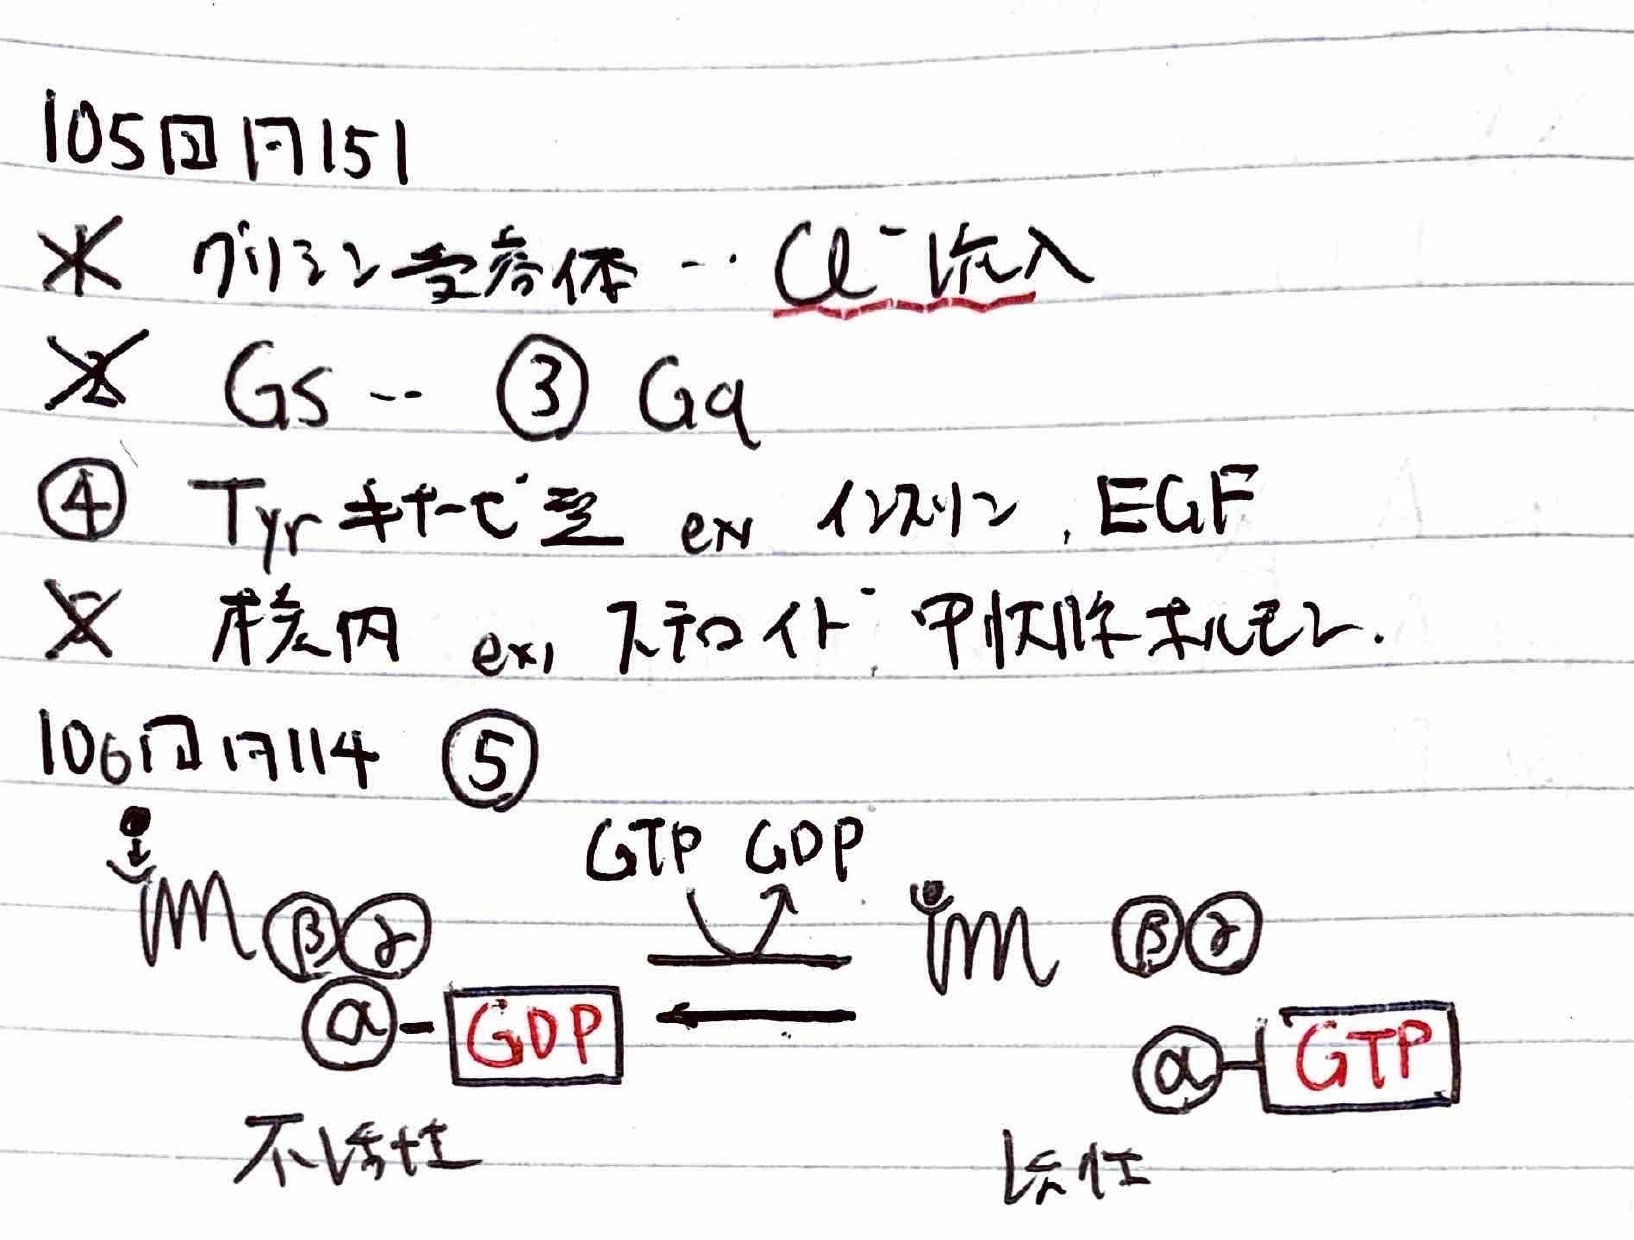 105回問151
1 グリシン受容体… Cl⁻流入
2 Gs … ③ Gq
④ Tyrキナーゼ型 ex インスリン, EGF
5 核内 ex, ステロイド, 甲状腺ホルモン.
106回問114 ⑤
GTP GDP
β γ β γ
α - GDP α - GTP
不活性 活性